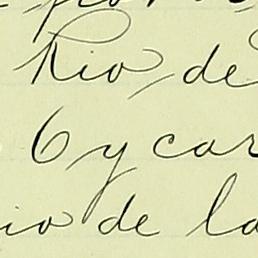 Rio, de
6 y car
io de la